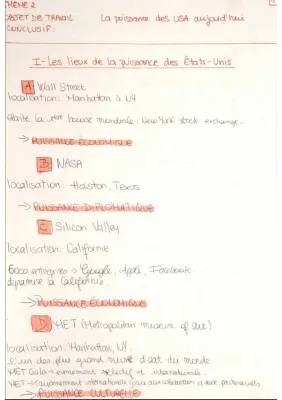 THEME 2
OBJET DE TRAVAIL La puissance des USA aujourd'hui
CONCLUSIF:
I-Les lieux de la puissance des États-Unis
A Wall Street
localisation: Manhattan à NY
Abrite la 1ère bourse mondiale: New York stock exchange.
→ PUISSANCE ECONOMIQUE
B NASA
localisation: Houston, Texas
→ PUISSANCE DIPLOMATIQUE
C Silicon Valley
localisation: Californie
6000 entreprises → Google, Apple, Facebook.
dynamise la Californie.
→ PUISSANCE ECONOMIQUE
D MET (Metropolitan museum of art)
localisation: Manhattan, NY.
L'un des plus grand musée d'art du monde
MET Gala → évènement sélectif et internationale.
MET → rayonnement internationale grâce aux collaboration
→ PUISSANCE CULTURELLE